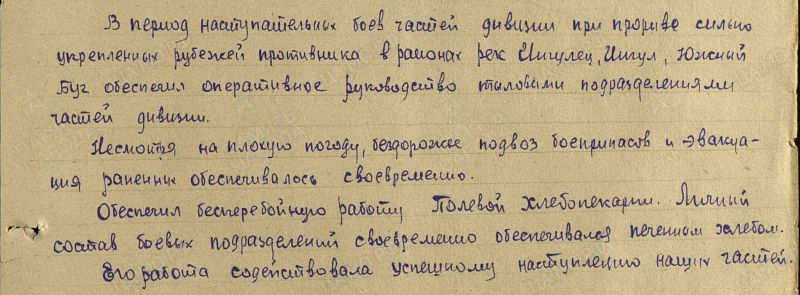 В период наступательных боев частей дивизии при прорыве сильно
укрепленных рубежей противника в районах рек Ингулец, Ингул, Южный
Буг обеспечил оперативное руководство тыловыми подразделениями
частей дивизии.
Несмотря на плохую погоду, бездорожье подвоз боеприпасов и эвакуа-
ция раненых обеспечивалось своевременно.
Обеспечил бесперебойную работу Полевой хлебопекарни. Личный
состав боевых подразделений своевременно обеспечивался печеным хлебом.
Его работа содействовала успешному наступлению наших частей.